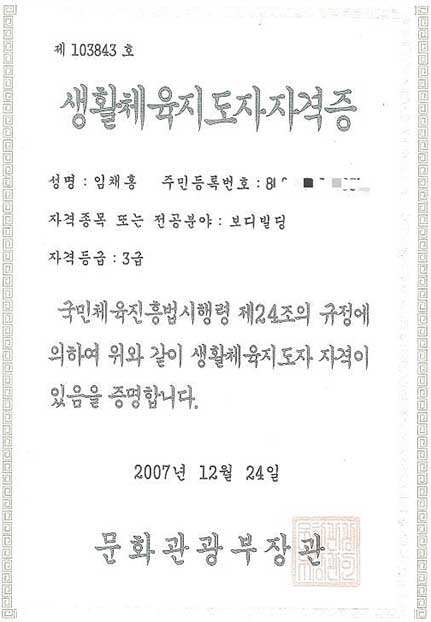 제 103843 호
생활체육지도자자격증
성명 : 임채홍 주민등록번호 : 8
자격종목 또는 전공분야 : 보디빌딩
자격등급 : 3급
국민체육진흥법시행령 제24조의 규정에
의하여 위와 같이 생활체육지도자 자격이
있음을 증명합니다.
2007년 12월 24일
문화관광부장관